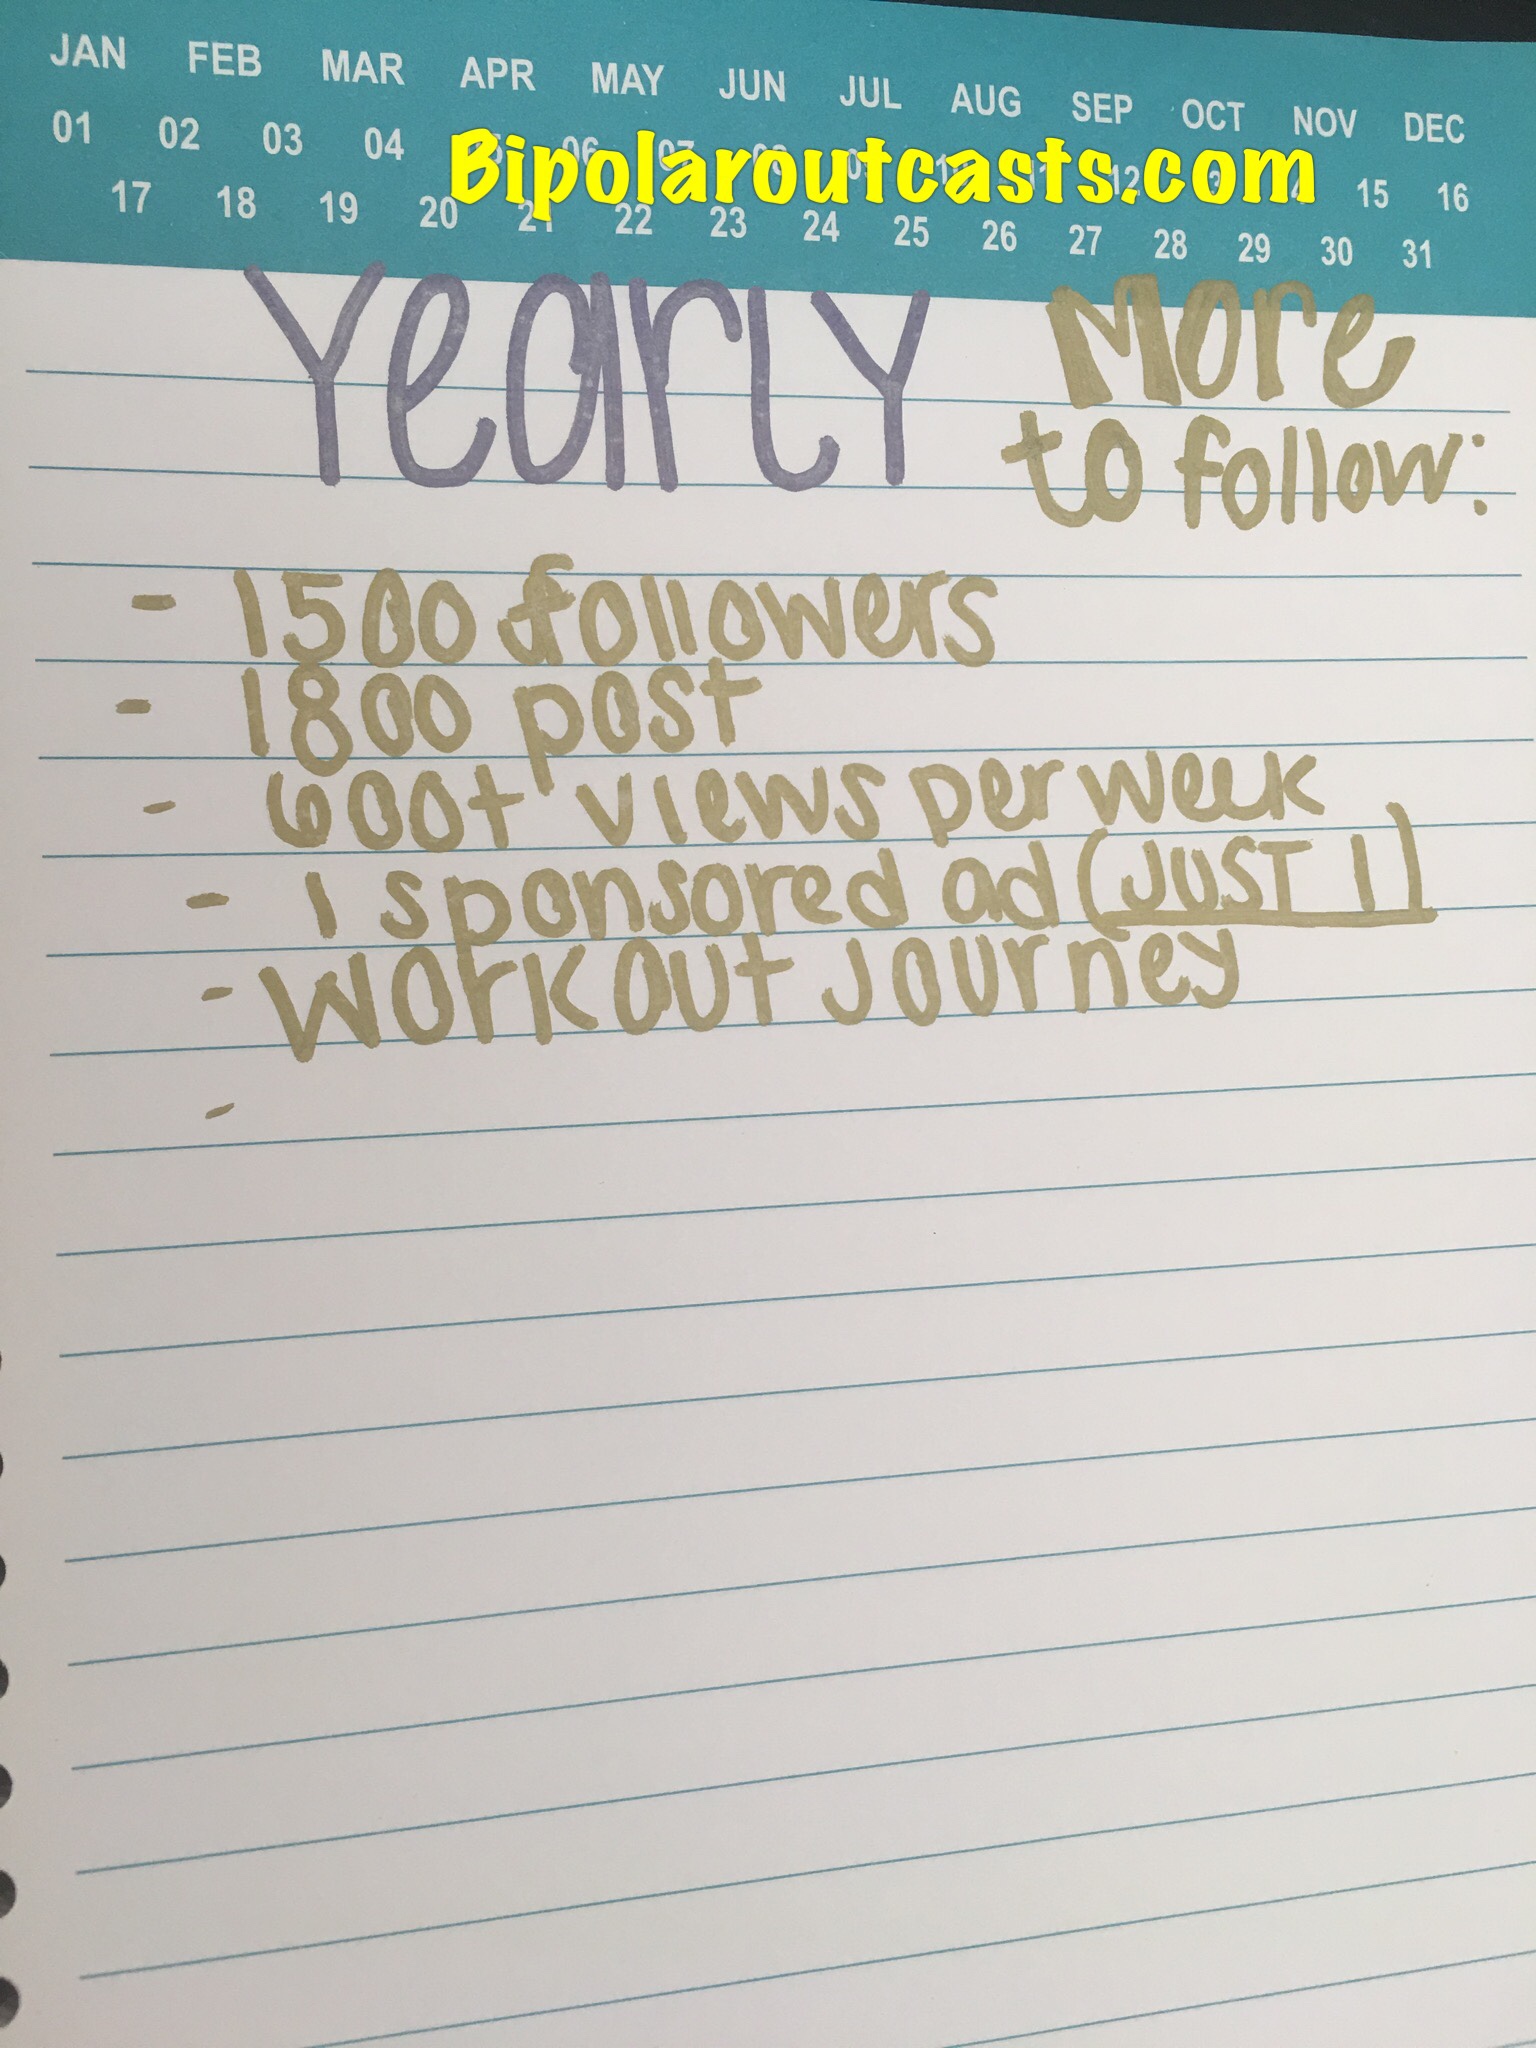 JAN FEB MAR APR MAY JUN JUL AUG SEP OCT NOV DEC
01 02 03 04 06 07 08 09 10 11 12 15 16
Bipolaroutcasts.com
17 18 19 20 21 22 23 24 25 26 27 28 29 30 31
Yearly More
to follow:
- 1500 followers
- 1800 post
- 600+ views per week
- 1 sponsored ad (JUST 1)
- Workout Journey
-